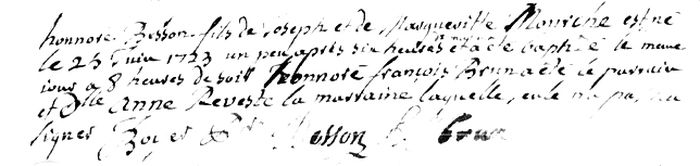 honnore Besson fils de Joseph et de Margueritte Mouriche est né
le 25 Juin 1723 un peu après six heures et a été baptisé le meme
jour a 8 heures de soir honnoré françois Brun a été le parrain
et Dlle Anne Reveste la marraine laquelle, na pas
signer Boyer Besson Brun